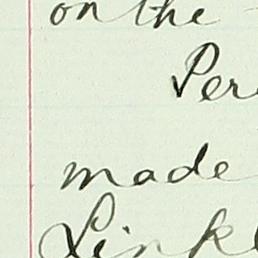 on the
Per
made
Link